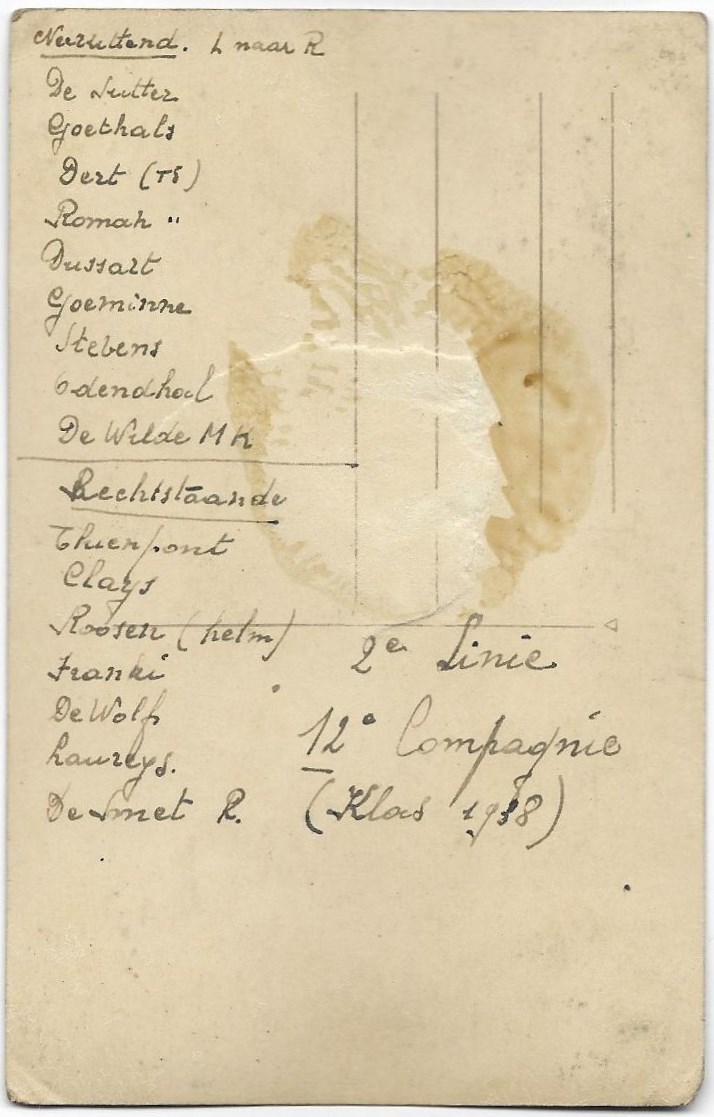 Neerzittend. L naar R
De Sutter
Goethals
Dert (TS)
Roman "
Dussart
Goeminne
Stevens
Odendhal
De Wilde M K
Rechtstaande
Thienpont
Clays
Roosen (helm)
Franki
De Wolf
Laureys.
De Smet R.
2e Linie
12e Compagnie
(Klas 1938)